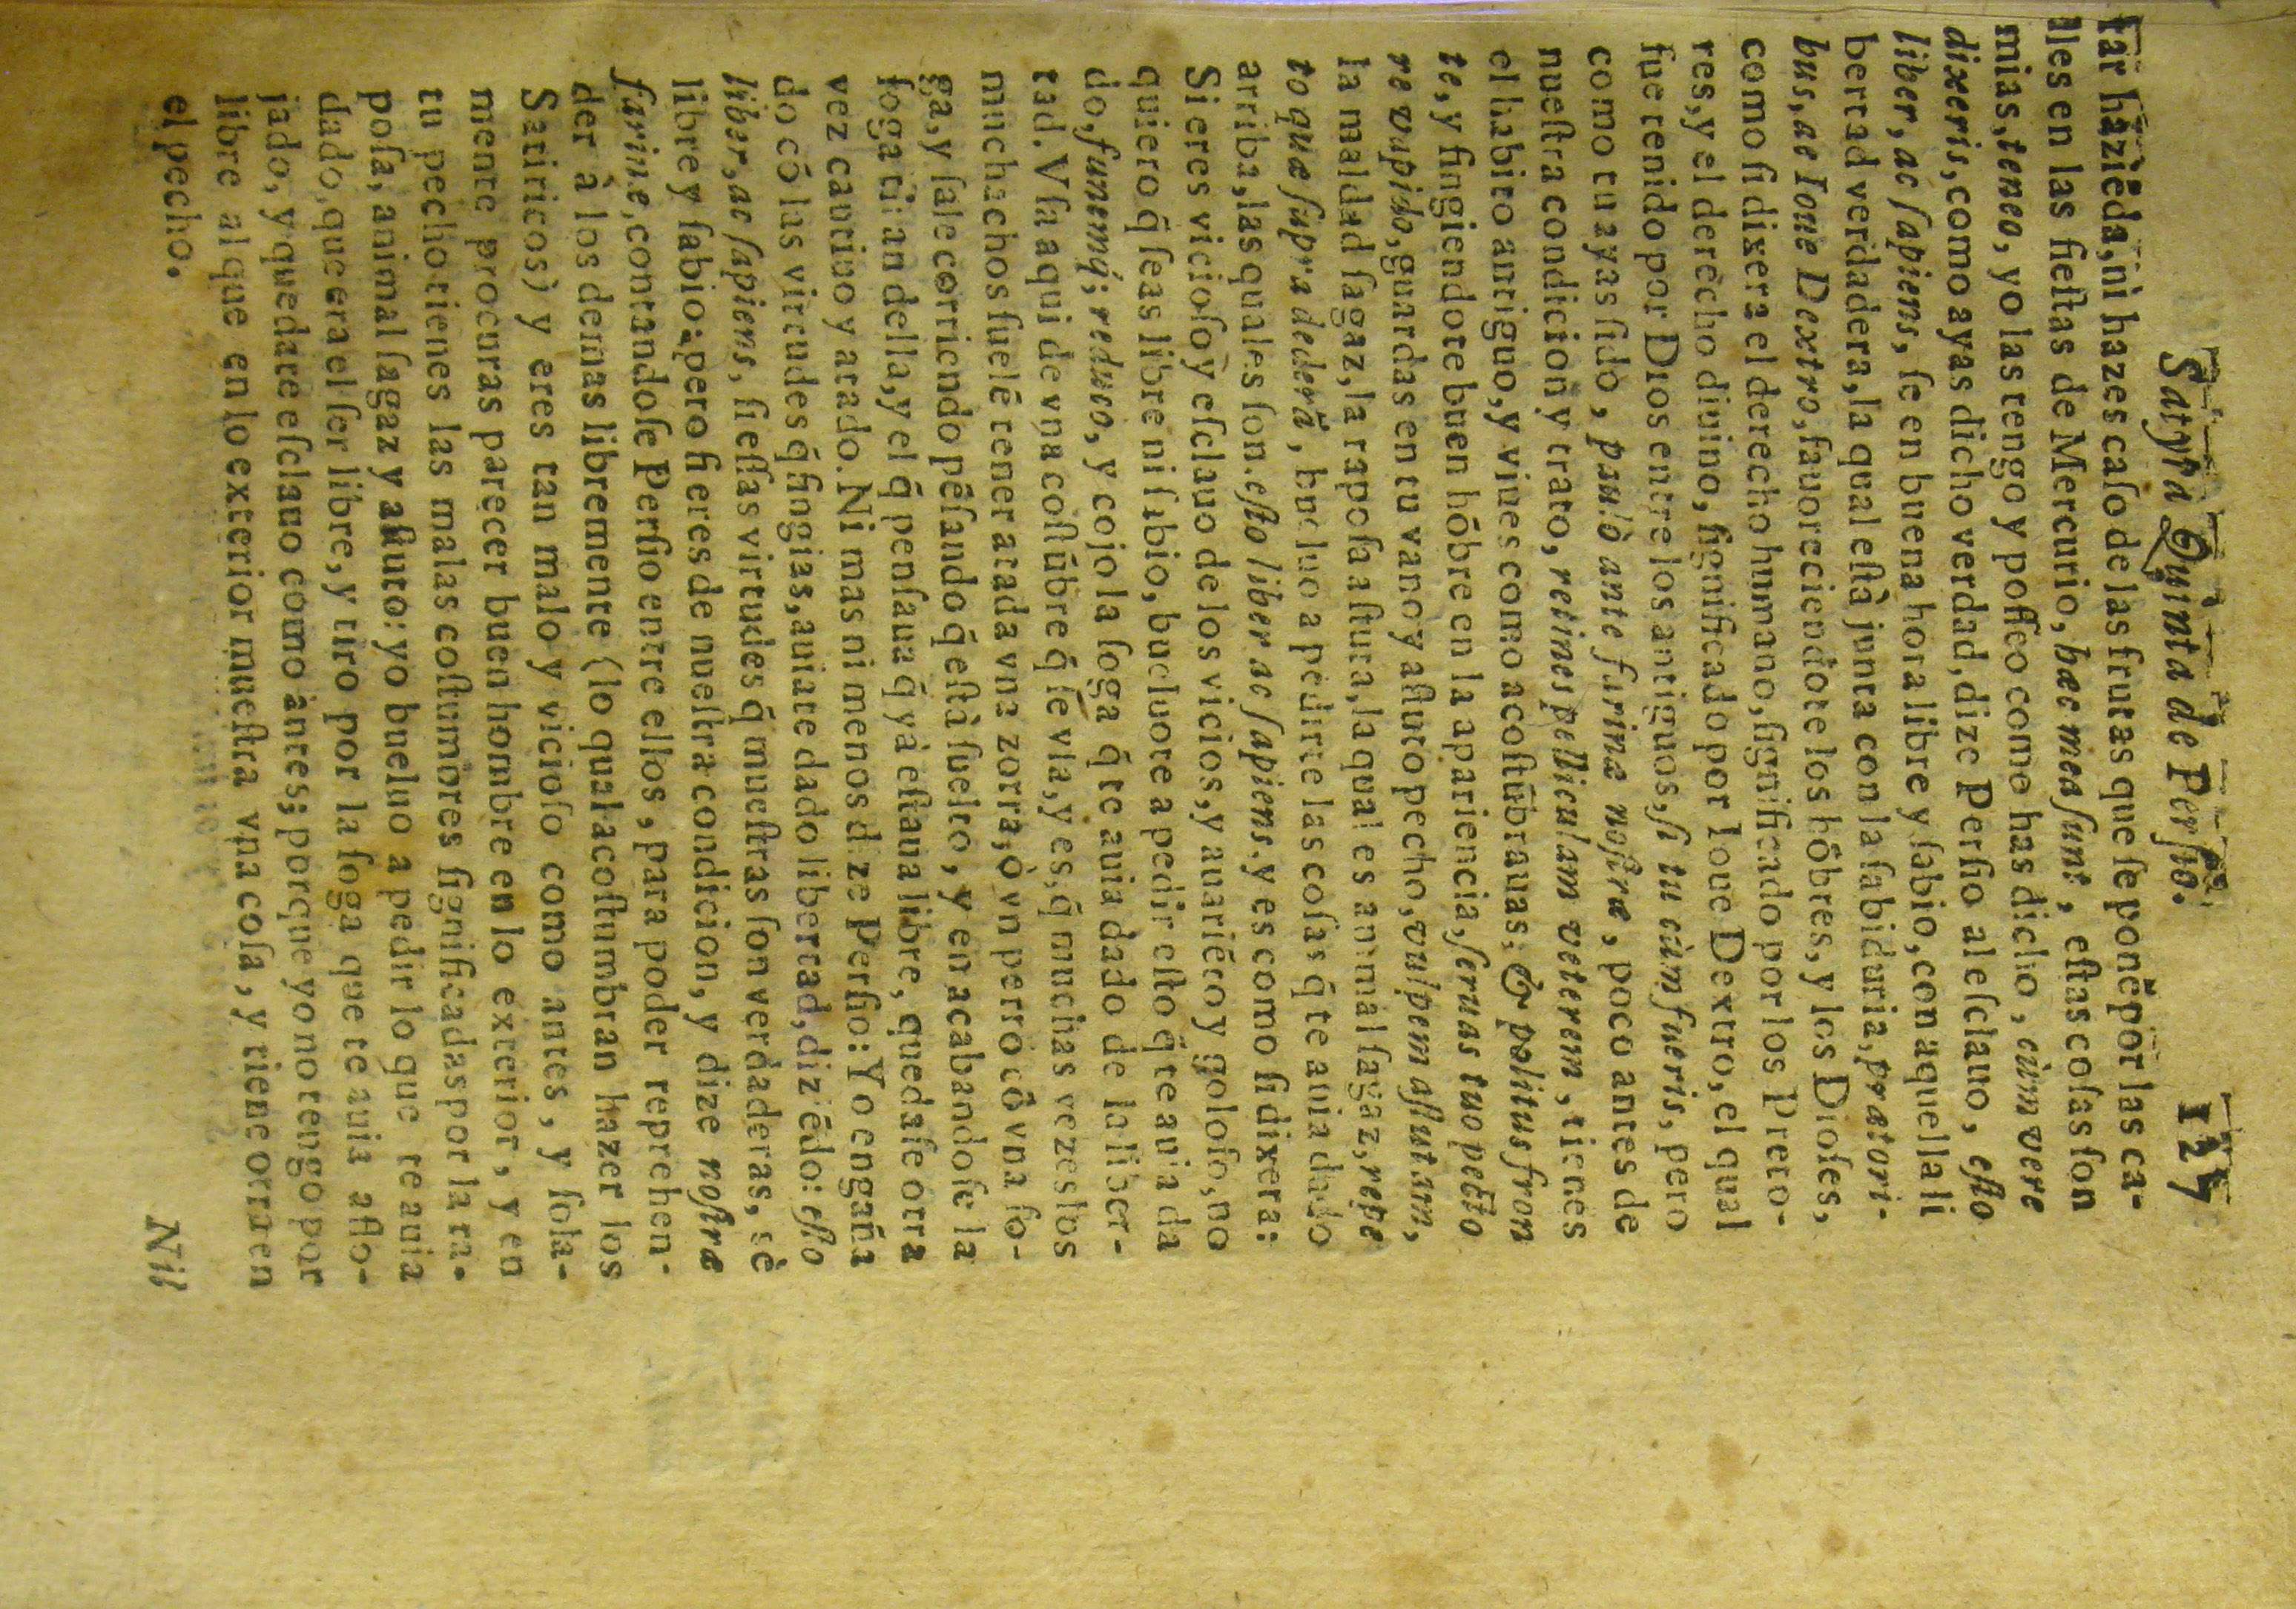 Satyra Quinta de Persio. 127
tar haziēda, ni hazes caſo de las frutas que ſe ponē por las ca-
lles en las fieſtas de Mercurio, hæc mea ſunt, eſtas coſas ſon
mias, teneo, yo las tengo y poſſeo come has dicho, cùm vere
dixeris, como ayas dicho verdad, dize Perſio al eſclauo, eſto
liber, ac ſapiens, ſe en buena hora libre y ſabio, con aquella li
bertad verdadera, la qual eſtà junta con la ſabiduria, prætori-
bus, ac Ioue Dextro, fauoreciendote los hōbres, y los Dioſes,
como ſi dixera el derecho humano, ſignificado por los Preto-
res, y el derecho diuino, ſignificado por Ioue Dextro, el qual
fue tenido por Dios entre los antiguos, ſi tu cùm fueris, pero
como tu ayas ſido, paulò ante farinæ noſtræ, poco antes de
nueſtra condicion y trato, retines pelliculam veterem, tienes
el habito antiguo, y viues como acoſtūbrauas, & politus fron
te, y fingiendote buen hōbre en la apariencia, ſeruas tuo pecto
re vapido, guardas en tu vano y aſtuto pecho, vulpem aſtutam,
la maldad ſagaz, la rapoſa aſtuta, la qual es animal ſagaz, repe
to quæ ſupra dederā, bueluo a pedirte las coſas q̄ te auia dado
arriba, las quales ſon. eſto liber ac ſapiens, y es como ſi dixera:
Si eres vicioſo y eſclauo de los vicios, y auariēto y goloſo, no
quiero q̄ ſeas libre ni ſabio, bueluote a pedir eſto q̄ te auia da
do, funemq́; reduco, y cojo la ſoga q̄ te auia dado de la liber-
tad. Vſa aqui de vna coſtūbre q̄ ſe vſa, y es, q̄ muchas vezes los
muchachos ſuelē tener atada vna zorra, ò vn perro cō vna ſo-
ga, y ſale corriendo pēſando q̄ eſtà ſuelto, y en acabandoſe la
ſoga tiran della, y el q̄ penſaua q̄ yà eſtaua libre, quedaſe otra
vez cautiuo y atado. Ni mas ni menos dize Perſio: Yo engaña
do cō las virtudes q̄ fingias, auiate dado libertad, diziēdo: eſto
liber, ac ſapiens, ſi eſſas virtudes q̄ mueſtras ſon verdaderas, sè
libre y ſabio: pero ſi eres de nueſtra condicion, y dize noſtræ
farinæ, contandoſe Perſio entre ellos, para poder reprehen-
der à los demas libremente (lo qual acoſtumbran hazer los
Satiricos) y eres tan malo y vicioſo como antes, y ſola-
mente procuras parecer buen hombre en lo exterior, y en
tu pecho tienes las malas coſtumbres ſignificadas por la ra-
poſa, animal ſagaz y aſtuto: yo bueluo a pedir lo que te auia
dado, que era el ſer libre, y tiro por la ſoga que te auia aflo-
jado, y quedate eſclauo como àntes; porque yo no tengo por
libre al que en lo exterior mueſtra vna coſa, y tiene otra en
el pecho.
Nil